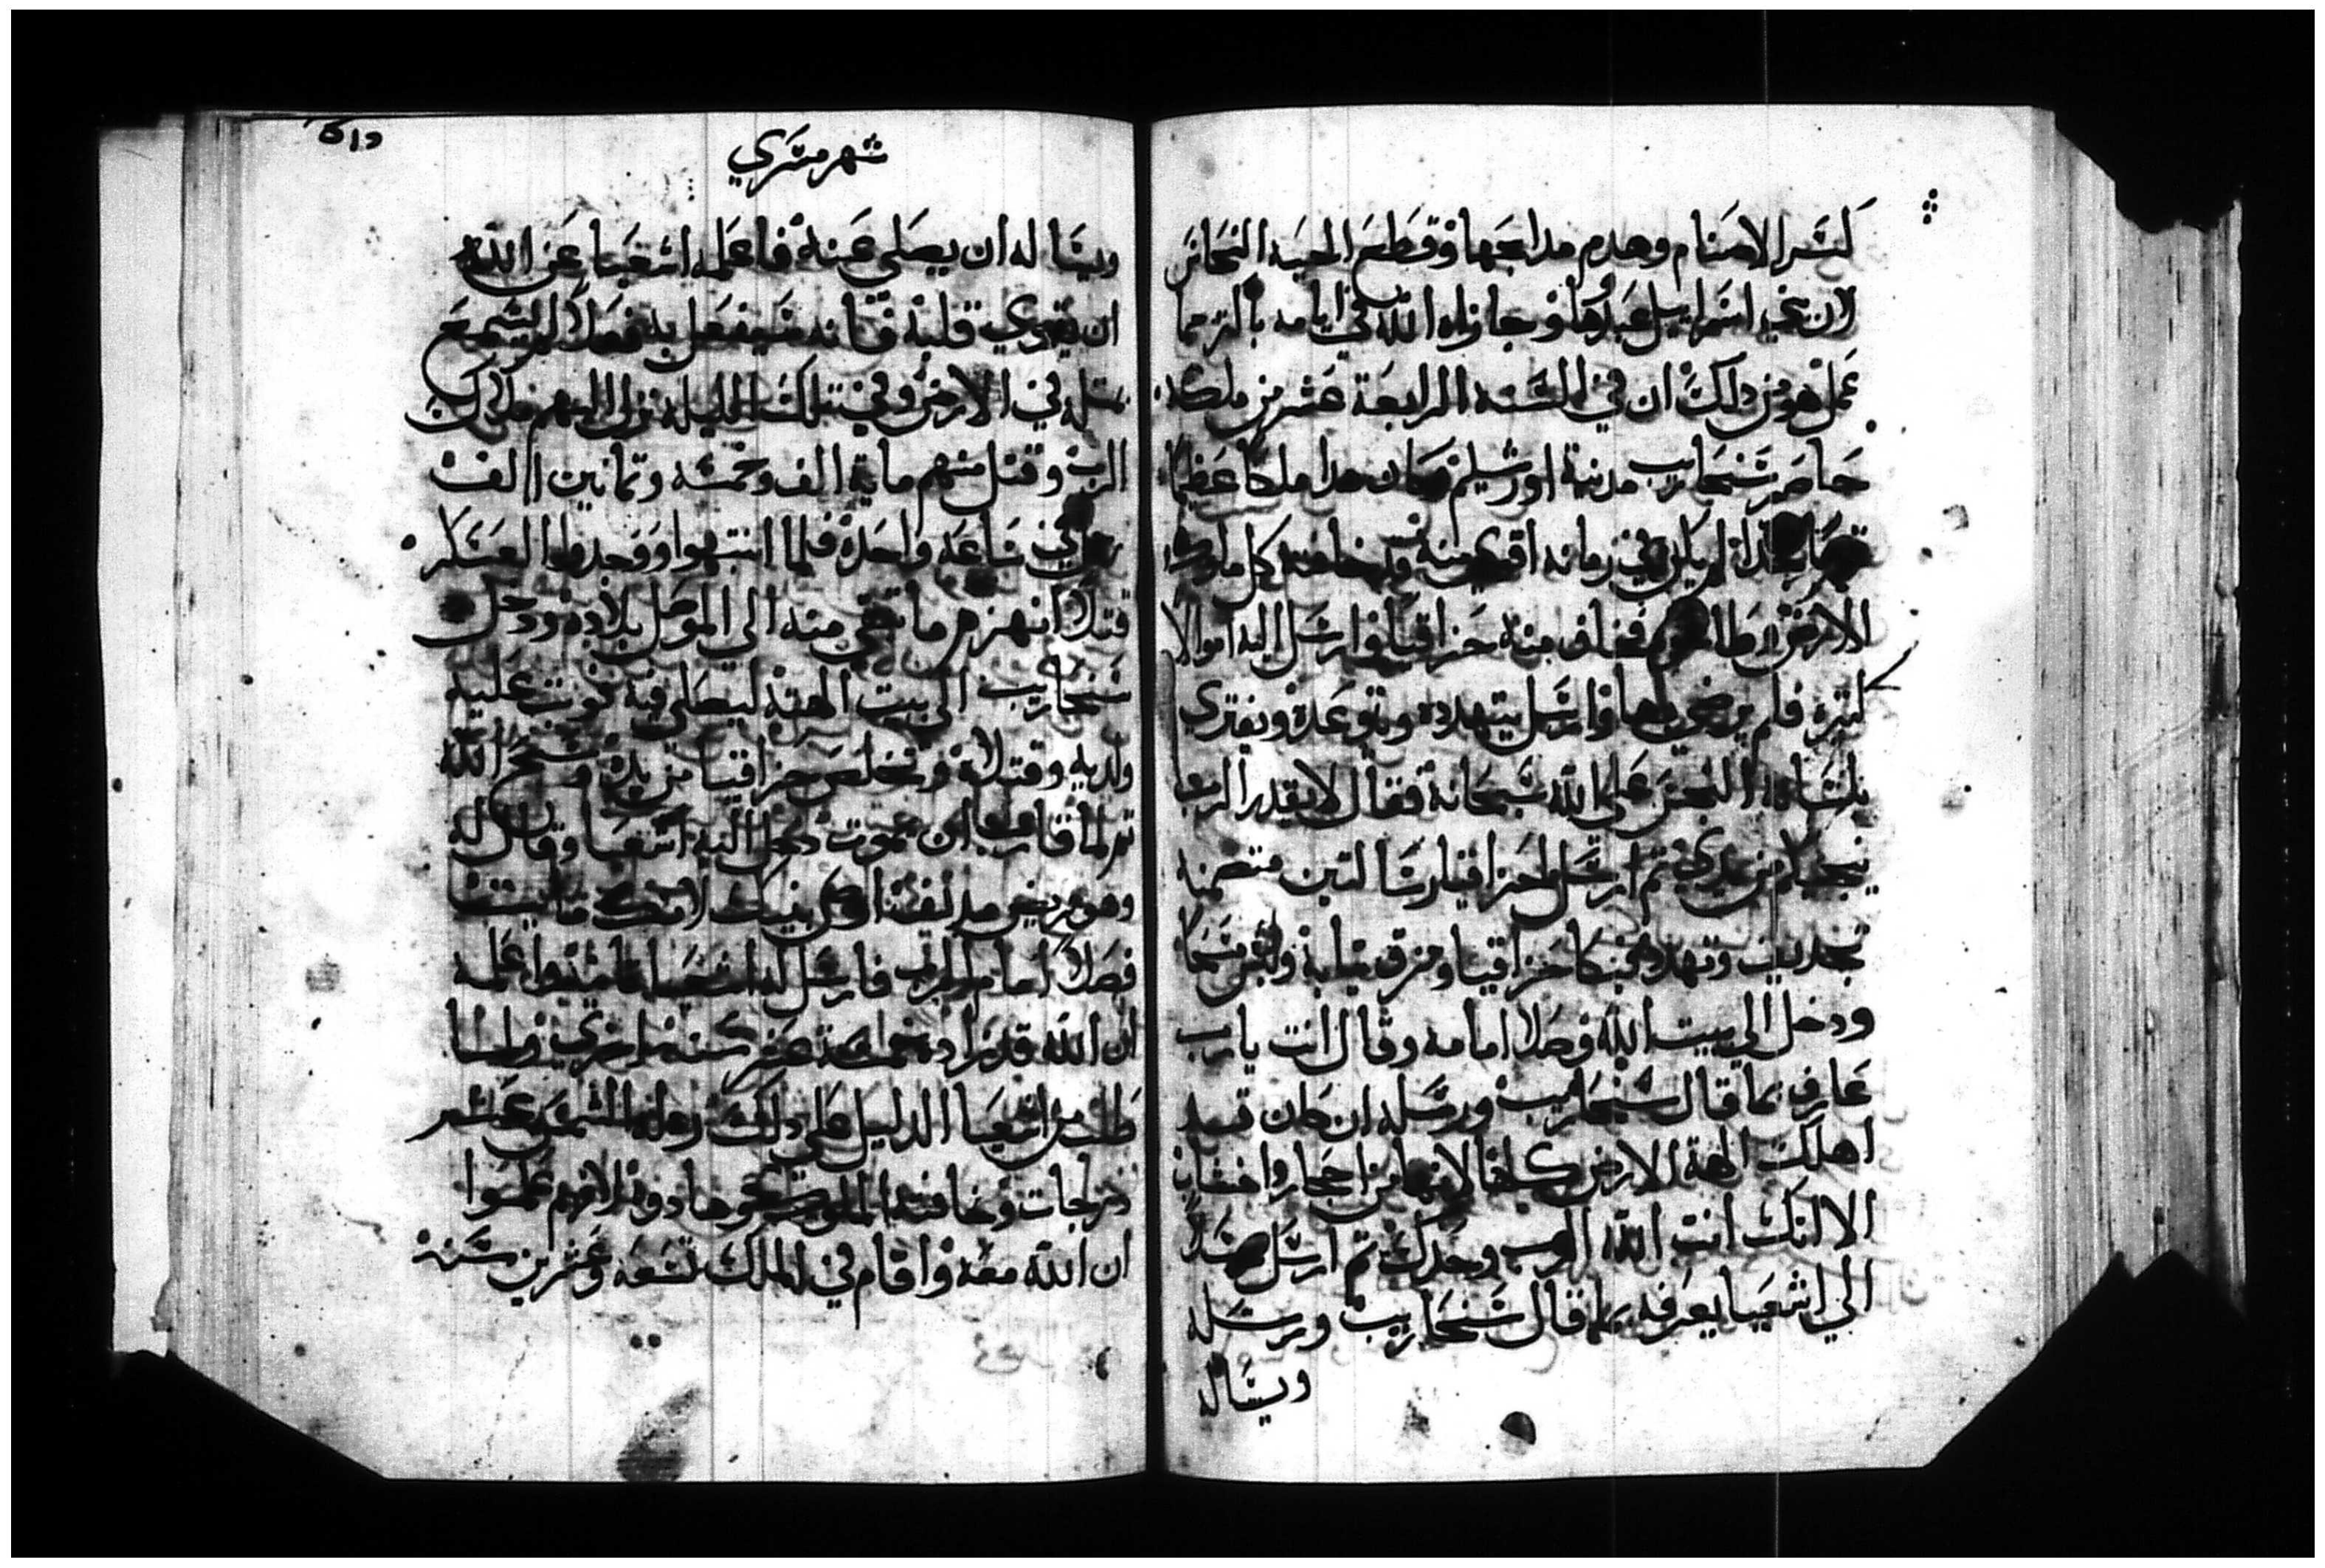 كسر الاصنام وهدم مدابحها وقطع الحيه النحاس
لان بني اسراييل عبدوها وجازاه الله في ايامه باكتر مما
عمل هو من دلك ان في السنه الرابعة عشر من ملكه
حاصر سنحاريب مدينة اورشليم وكان هدا ملكا عظيما
لم يكن في زمانه اقوي منه كل ملوك
الارض فخاف منه حزاقيا وارسل اليه اموالا
كتيره فلم يرضي بها وارسل يتهدده ويتوعده ويفتري
بلسانه النجس علي الله سبحانه فقال لا يقدر الرب
ينجيكم من يدي تم ارسل لحزاقيا رسالتين متضمنه
تجديف وتهدد فبكا حزاقيا ومزق تيابه ولبس مسحا
ودخل الي بيت الله وصلا امامه وقال انت يارب
عارف بما قال سنحاريب ورسله ان كان قد
اهلك الهة الارض كلها لانها من احجار واخشاب
الا انك انت الله الرب وحدك تم ارسل
الي اشعيا يعرفه بما قال سنحاريب ورسله
ويساله
شهر مسري
ويساله ان يصلي عنه فاعلمه اشعيا عن الله
ان يقوي قلبه فانه سيفعل به فعلا لم يسمع
بمتله في الارض وفي تلك الليله نزل اليهم ملاك
الرب وقتل منهم ماية الف وخمسه وتمانين الف
رجل في ساعه واحدة فلما انتبهوا ووجدوا العسكر
قتلا انهزم ما بقي منه الي الموصل بلاده ودخل
سنحاريب الي بيت الهته ليصلي فيه فوتب عليه
ولديه وقتلاه وتخلص حزاقيا من يده وسبح الله
تم لما قارب ان يموت دخل اليه اشعيا وقال له
وهو مريض بنيك لانك
فصلا امام الرب فارسل له اشعيا علمه
ان الله قد زاده خمسة عشر سنه اخري ولما
طلب من اشعيا الدليل علي دلك رد له الشمس عشر
درجات وخافته الملوك لانهم علموا
ان الله معه واقام في الملك تسعه وعشرين سنه